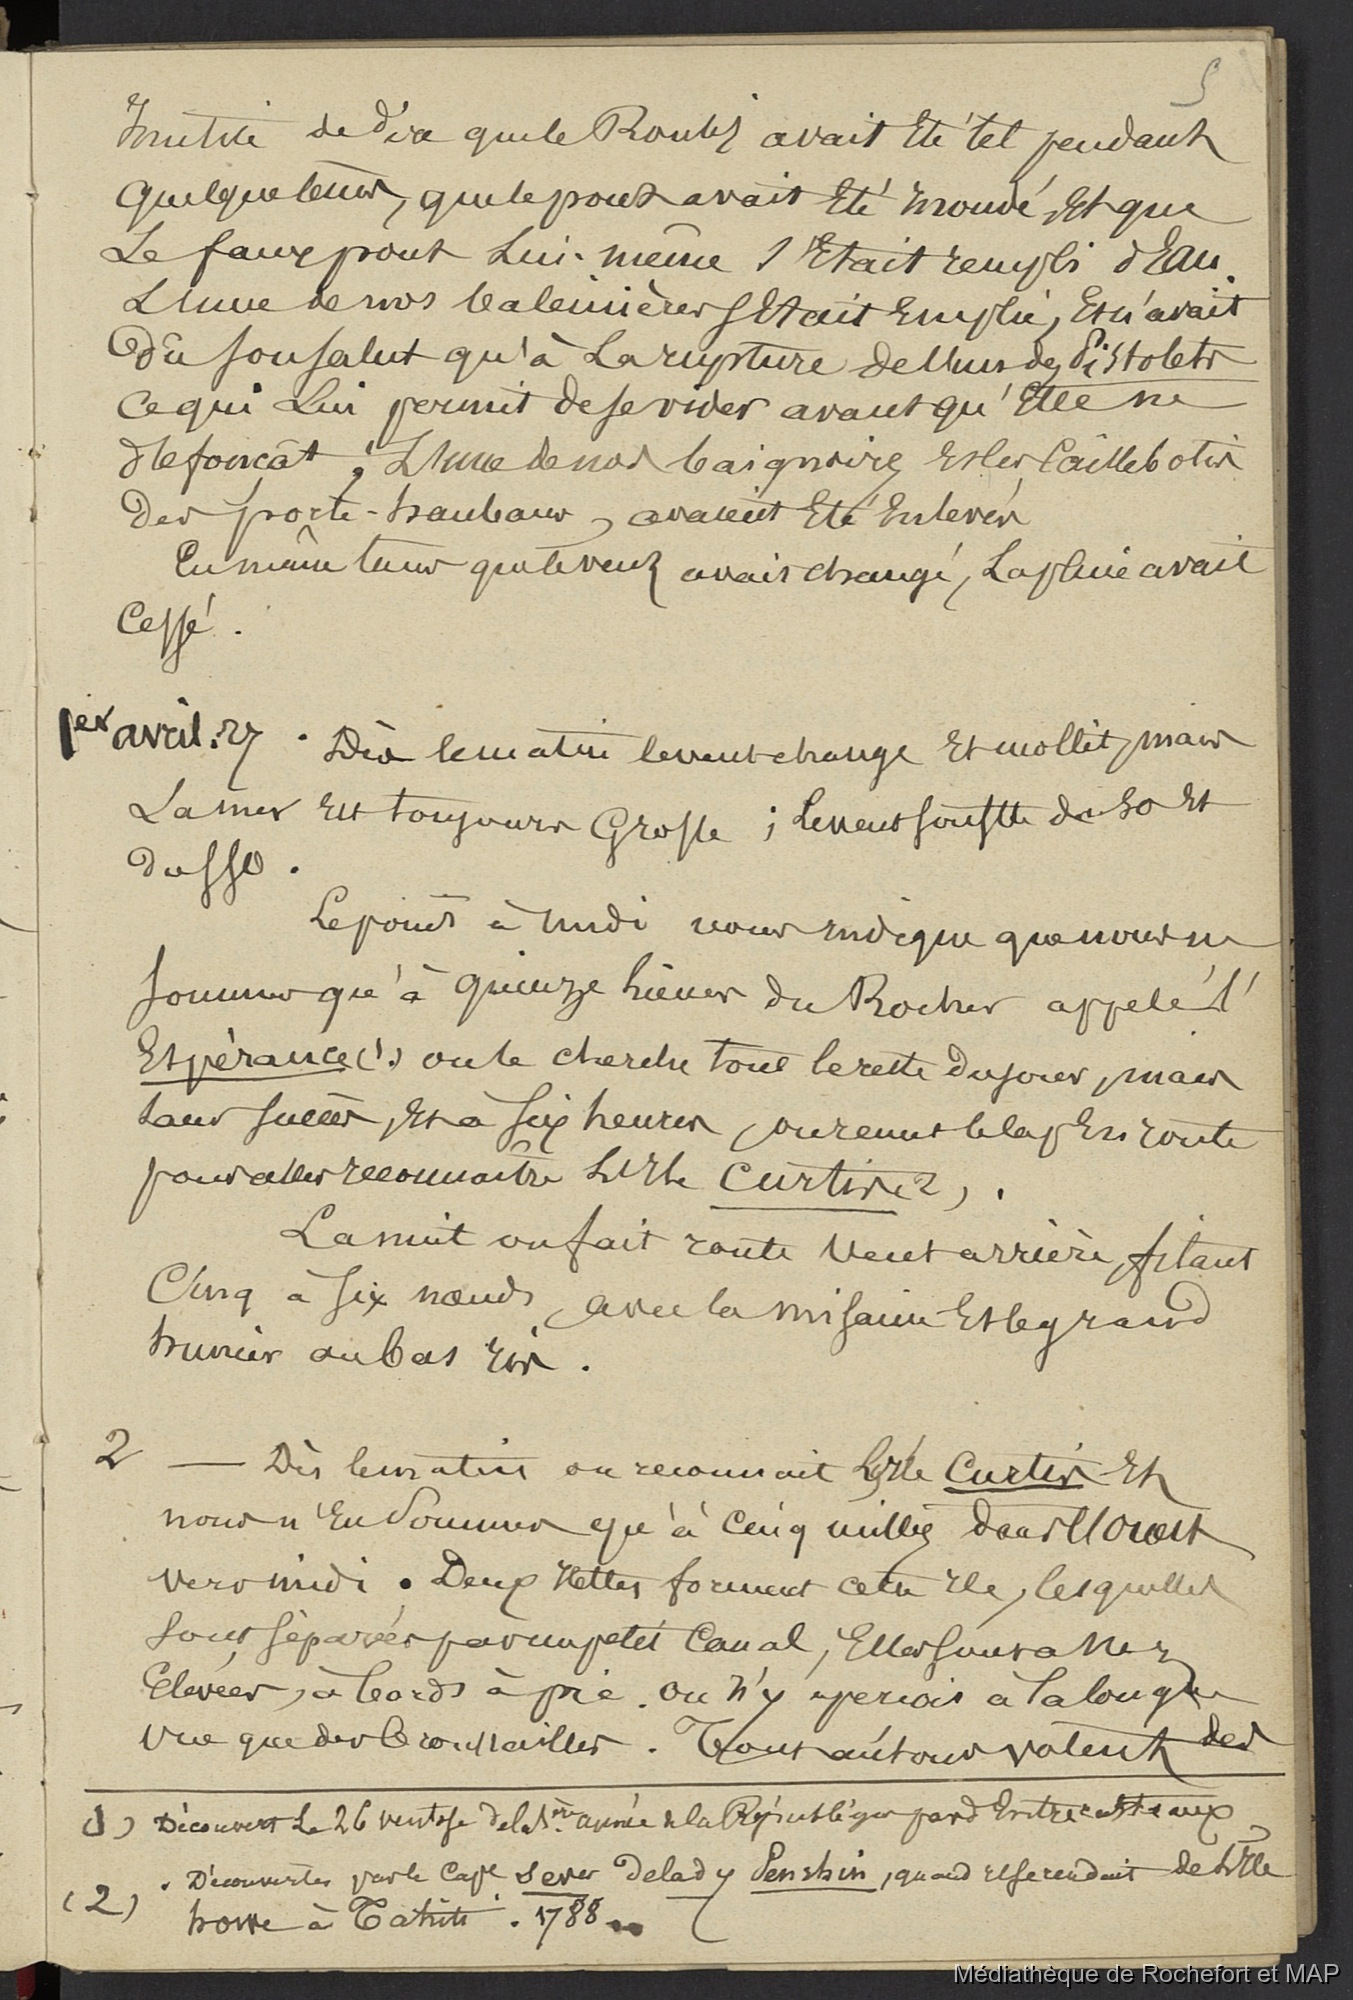 5
Inutile de dire que le Roulis avait Eté tel pendant
quelque tems, que le pont avait Eté inondé, Et que
Le faux pont Lui-même s'Etait rempli d'Eau.
L'Une de nos baleinières s'Etait Emplie, Et n'avait
dû son salut qu'à La rupture de l'Un des Pistolets
Ce qui Lui permit de se vider avant qu'Elle ne
défonçât ; L'Une de nos baignoires Et les Caillebotis
Des porte-haubans, avaient Eté Enlevés
En même tems que le vent avait changé, La pluie avait
Cessé.
1er avril. 27. Dès le matin le vent change Et mollit, mais
La mer Est toujours Grosse ; Le vent souffle du SO Et
du SSO.
Le point à midi nous indique que nous ne
sommes qu'à quinze lieues du Rocher appelé l'
Espérance (1) on le cherche tout le reste du jour, mais
sans succès, Et à six heures, on remet le cap En route
pour aller reconnaître L'Ile Curtis (2).
La nuit on fait route Vent arrière, filant
Cinq à six nœuds, avec la misaine Et le grand
hunier au bas ris.
2 — Dès le matin on reconnait L'Ile Curtis Et
nous n'En Sommes qu'à Cinq milles dans l'Ouest
vers midi. Deux Ilettes forment cette Ile, lesquelles
sont séparées par un petit Canal, Elles sont assez
Elevées, à bords à pic. On n'y aperçois à la longue
vue que des broussailles. Tout autour volent des
(1) Découvert Le 26 ventose de la 1ère année de la République par d'Entrecasteaux
(2) . Découvertes par le Cape Sever De lady Penrhin, quand il se rendait de L'Ile
howe à Tahiti. 1788.
Médiathèque de Rochefort et MAP